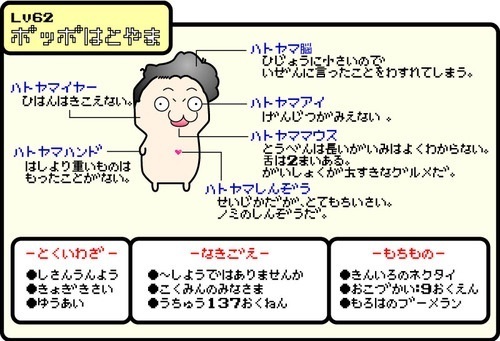 Lv62
ポッポはとやま
ハトヤマ脳
ひじょうに小さいので
いぜんに言ったことをわすれてしまう。
ハトヤマイヤー
ひはんはきこえない。
ハトヤマアイ
げんじつがみえない 。
ハトヤママウス
とうべんは長いがいみはよくわからない。
舌は2まいある。
がいしょくが大すきなグルメだ。
ハトヤマハンド
はしより重いものは
もったことがない。
ハトヤマしんぞう
せいじかだが、とてもちいさい。
ノミのしんぞうだ。
ーとくいわざー
●しさんうんよう
●きょぎきさい
●ゆうあい
ーなきごえー
●～しようではありませんか
●こくみんのみなさま
●うちゅう137おくねん
ーもちものー
●きんいろのネクタイ
●おこづかい:9おくえん
●もろはのブーメラン